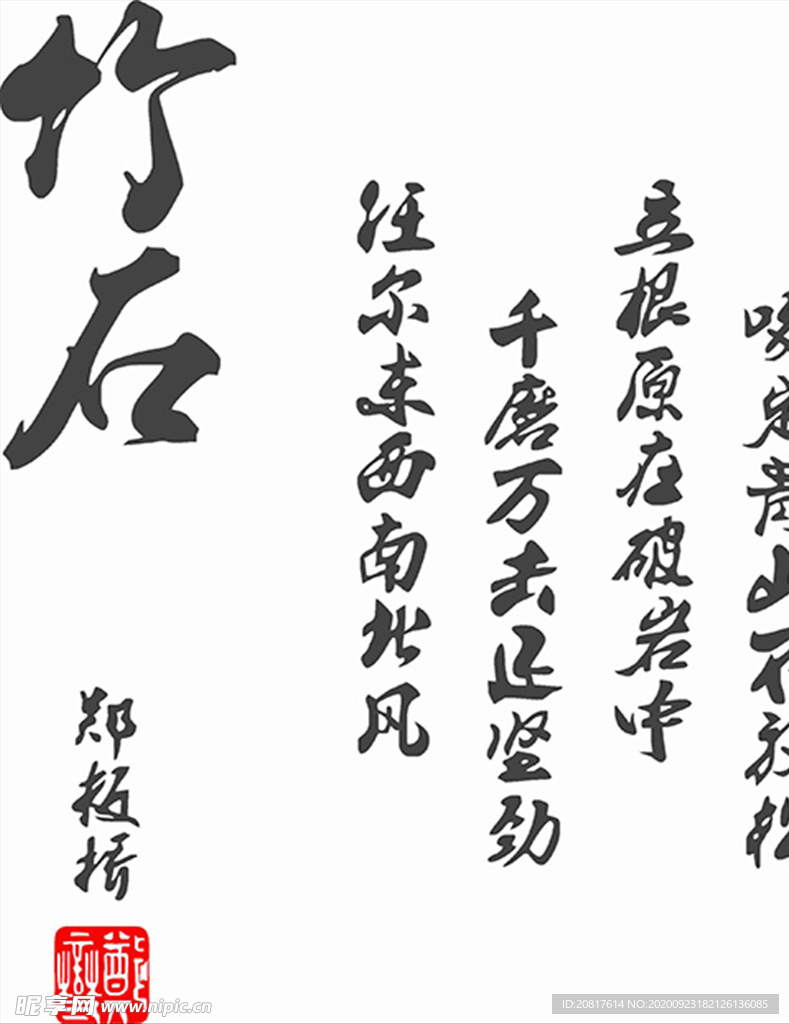 咬定青山不放松
立根原在破岩中
千磨万击还坚劲
任尔东西南北风
竹石
郑板桥
昵享网 www.nipic.cn
ID:20817614 NO:20200923182126136085